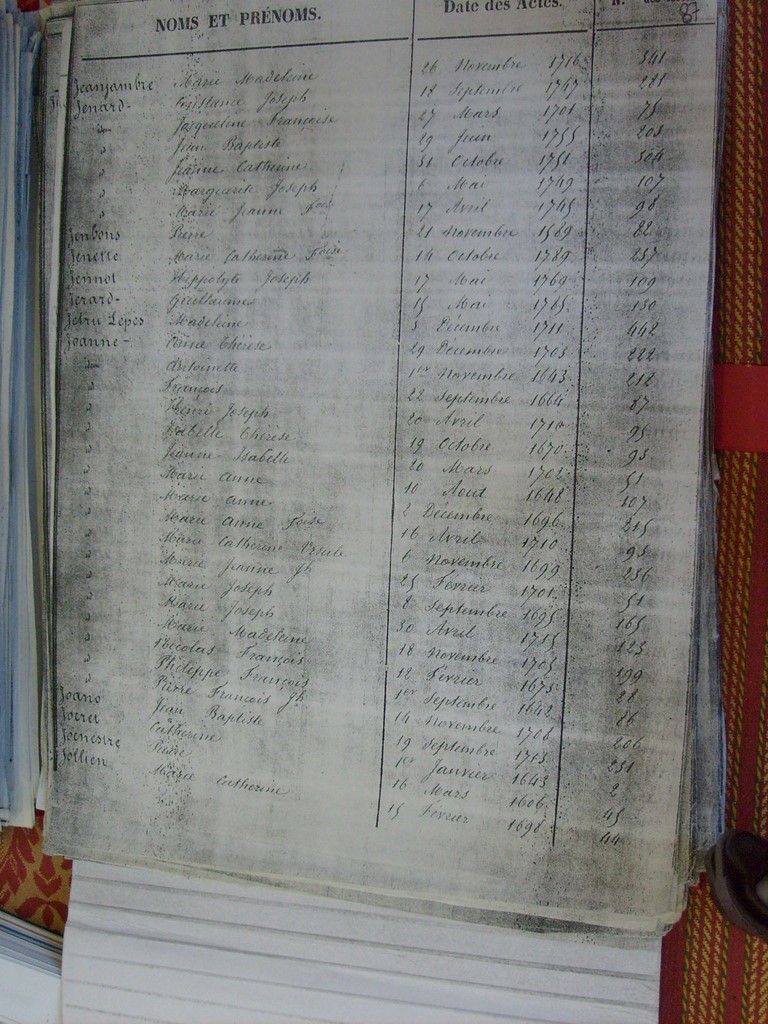 NOMS ET PRÉNOMS. Date des Actes. N.
87
Jeanjambre Marie Madeleine 26 Novembre 1716 341
Jenard Constance Joseph 12 Septembre 1747 281
do Jacqueline Françoise 27 Mars 1701 75
" Jean Baptiste 29 Juin 1755 203
" Jeanne Catherine 31 Octobre 1751 304
" Marguerite Joseph 6 Mai 1749 107
" Marie Jeanne 17 Avril 1745 98
Jenbons 21 Novembre 1589 82
Jenette Marie Catherine 14 Octobre 1789 237
Jennot Hippolyte Joseph 17 Mai 1769 109
Jerard Guillaume 15 Mai 1765 130
Jetru Lepes Madeleine 5 Décembre 1711 442
Joanne Anne Thérèse 29 Décembre 1703 222
do Antoinette 1er Novembre 1643 212
" François 22 Septembre 1664 87
" Henri Joseph 20 Avril 1710 95
" Isabelle Thérèse 19 Octobre 1670 93
" Jeanne Isabelle 20 Mars 1702 51
" Marie Anne 10 Aout 1648 107
" Marie Anne 2 Décembre 1696 215
" Marie Anne 16 Avril 1710 93
" Marie Catherine Ursule 6 Novembre 1699 236
" Marie Jeanne Jh 25 Février 1701 51
" Marie Joseph 8 Septembre 1695 165
" Marie Joseph 30 Avril 1715 123
" Marie Madeleine 18 Novembre 1705 199
" Nicolas François 12 Février 1673 28
" Philippe François 1er Septembre 1642 86
" Pierre François Jh 14 Novembre 1706 206
Joano Jean Baptiste 19 Septembre 1713 231
Joeret Catherine 1er Janvier 1643 2
Joenestre Pierre 16 Mars 1606 45
Jollien Marie Catherine 15 Février 1698 44